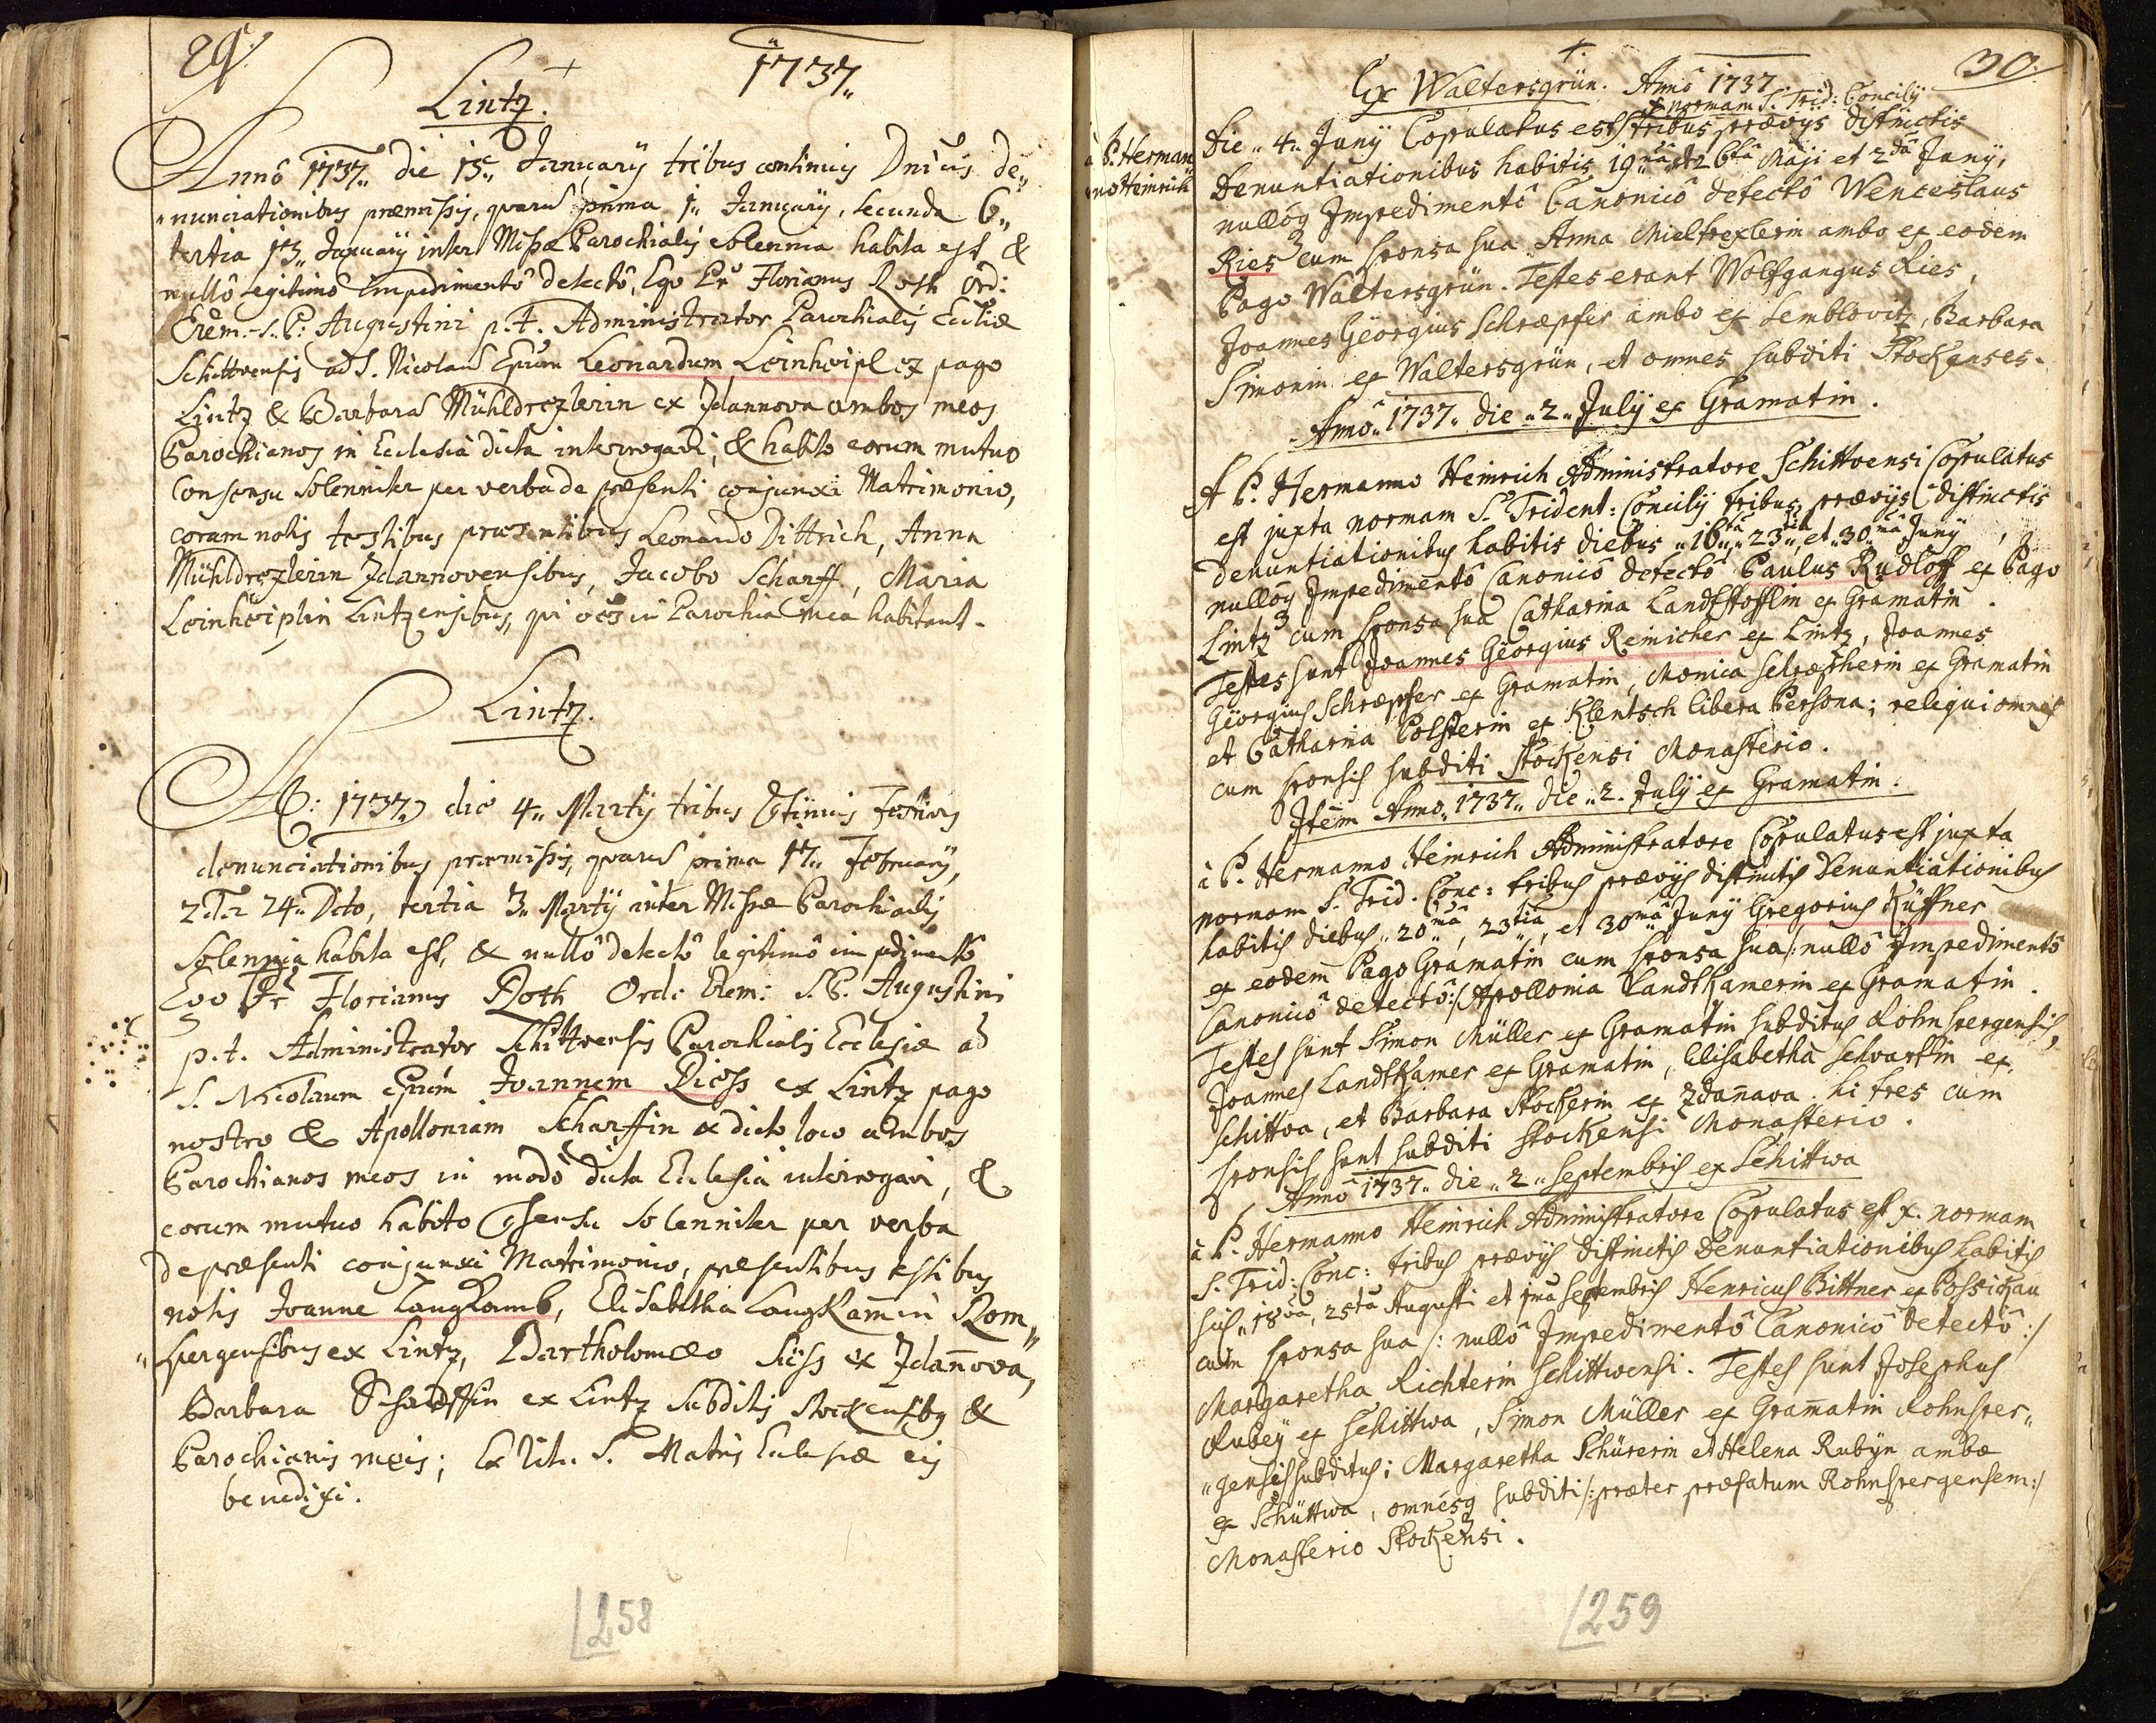 29.
1737
Lintz.
Annô 1737 die 15 Januarÿ tribus continuis Dnĩcis de„
„nunciationibus præmissis, quarũ prima 1„ Januarÿ, secunda 6„
tertia 13„ Januarÿ inter Missæ Parochialis solennia habita est &
nullô legitimô impedimentô detectô, Ego Fr Florianus Roth Ord:
Erem. S. P. Augustini p.t. Administrator Parochialis Eccliæ
Schittvensis ad S. Nicolaũ Epum Leonardum Leinheipl ex pago
Lintz & Barbarã Mühldrexlerin ex Zdannova ambos meos
Parochianos in Ecclesia dicta interrogavi, & habito eorum mutuo
Consensu Solenniter per verba de præsenti conjunxi Matrimonio,
coram notis testibus præsentibus Leonardo Dittrich, Anna
Mühldrexlerin Zdannovensibus, Jacobo Scharff, Maria
Leinheiplin Lintzensibus, qui oẽs in Parochia mea habitant.
Lintz.
Aõ: 1737 die 4„ Martÿ tribus Cstinuis Festivis
denunciationibus præmissis, quarũ prima 17„ Februarÿ,
2da 24„ Dito, tertia 3„ Martÿ inter Missæ Parochialis
Solennia habita est, & nullô detectô legitimô impedimento
Ego Fr Florianus Roth Ord: Erem: S. P. Augustini
p.t. Administrator Schittvensis Parochialis Ecclesiæ ad
S. Nicolaum Epum Joannem Riess ex Lintz pago
nostro & Apolloniam Scharffin ex dicto loco ambos
Parochianos meos in modò dicta Ecclesia interrogavi, &
eorum mutuo habito Csensu Solenniter per verba
de præsenti conjunxi Matrimonio, præsentibus testibus
notis Joanne Langkamb, Elisabetha Langkamin Rom„
„spergensibus ex Lintz, Bartholomæo Süss ex Zdanova,
Barbara Scharffin ex Lintz Subditis Stockensibg &
Parochianis meis; Ex Ritu S. Matris Ecclesiæ eis
benedixi.
258
30.
Ex Waltersgrün. Annô 1737
x normam S. Trid: Concilÿ
à P. Herman
no Heinrich
Die „4„ Junÿ Copulatus est tribus prævÿs distinctis
Denuntiationibus habitis 19nâ et 26tâ Maji et 2dâ Junÿ,
nullôq Impedimentô Canonicô detectô Wenceslaus
Ries cum sponsa sua Anna Mieltrexlerin ambo ex eodem
Pago Waltersgrün. Testes erant Wolfgangus Ries,
Joannes Geörgius Schræpfer ambo ex Semblovitz, Barbara
Simonin ex Waltersgrün, et omnes subditi Stockenses.
Annô 1737 die „2„ Julÿ ex Gramatin.
A P. Hermanno Heinrich Administratore Schittvensi Copulatus
est juxta normam S. Trident: Concilÿ tribus prævÿs distinctis
denuntiationibus habitis diebus „16tâ „23tiâ et „30mâ Junÿ,
nullôq Impedimentô Canonicô detectô Paulus Rudloff ex Pago
Lintz cum sponsa sua Catharina Landtstofflin ex Gramatin.
Testes sunt Joannes Geörgius Reinicher ex Lintz, Joannes
Geörgius Schræpfer ex Gramatin, Monica Schræpherin ex Gramatin
et Catharina Polsterin ex Klentsch libera Persona; reliqui omnes
cum sponsis subditi Stockensi Monasterio.
Item Anno 1737 die „2. Julÿ ex Gramatin.
à P. Hermanno Heinrich Administratore Copulatus est juxta
normam S. Trid. Conc: tribus prævÿs distinctis Denuntiationibus
habitis diebus „20mâ, 23tiâ, et 30mâ Junÿ Gregorius Küffner
ex eodem Pago Gramatin cum sponsa sua /: nullô Impedimentô
Canonicô detectô :/ Apollonia Landtkamerin ex Gramatin.
Testes sunt Simon Müller ex Gramatin subditus Rohnspergensis,
Joannes Landtkamer ex Gramatin, Elisabetha Schvartzin ex
Schittva, et Barbara Stockerin ex Zdanava. hi tres cum
sponsis sunt subditi Stockensi Monasterio.
Annô 1737„ die „2„ Septembris ex Schittwa
à P. Hermanno Heinrich Administratore Copulatus est x. normam
S. Trid: Conc: tribus prævÿs distinctis Denuntiationibus habitis
his „18vâ, 25tâ Augusti et 1mâ Septembris Henricus Bittner ex Possigkau
cum sponsa sua /: nullô Impedimentô Canonicô detectô :/
Margaretha Richterin Schittwensi. Testes sunt Josephus
Rubeÿ ex Schittwa, Simon Müller ex Gramatin Rohnsper„
„gensis subditus; Margaretha Schürerin et Helena Rubÿn ambæ
ex Schüttwa, omnesq subditi /: præter præfatum Rohnspergensem :/
Monasterio Stockensi.
259